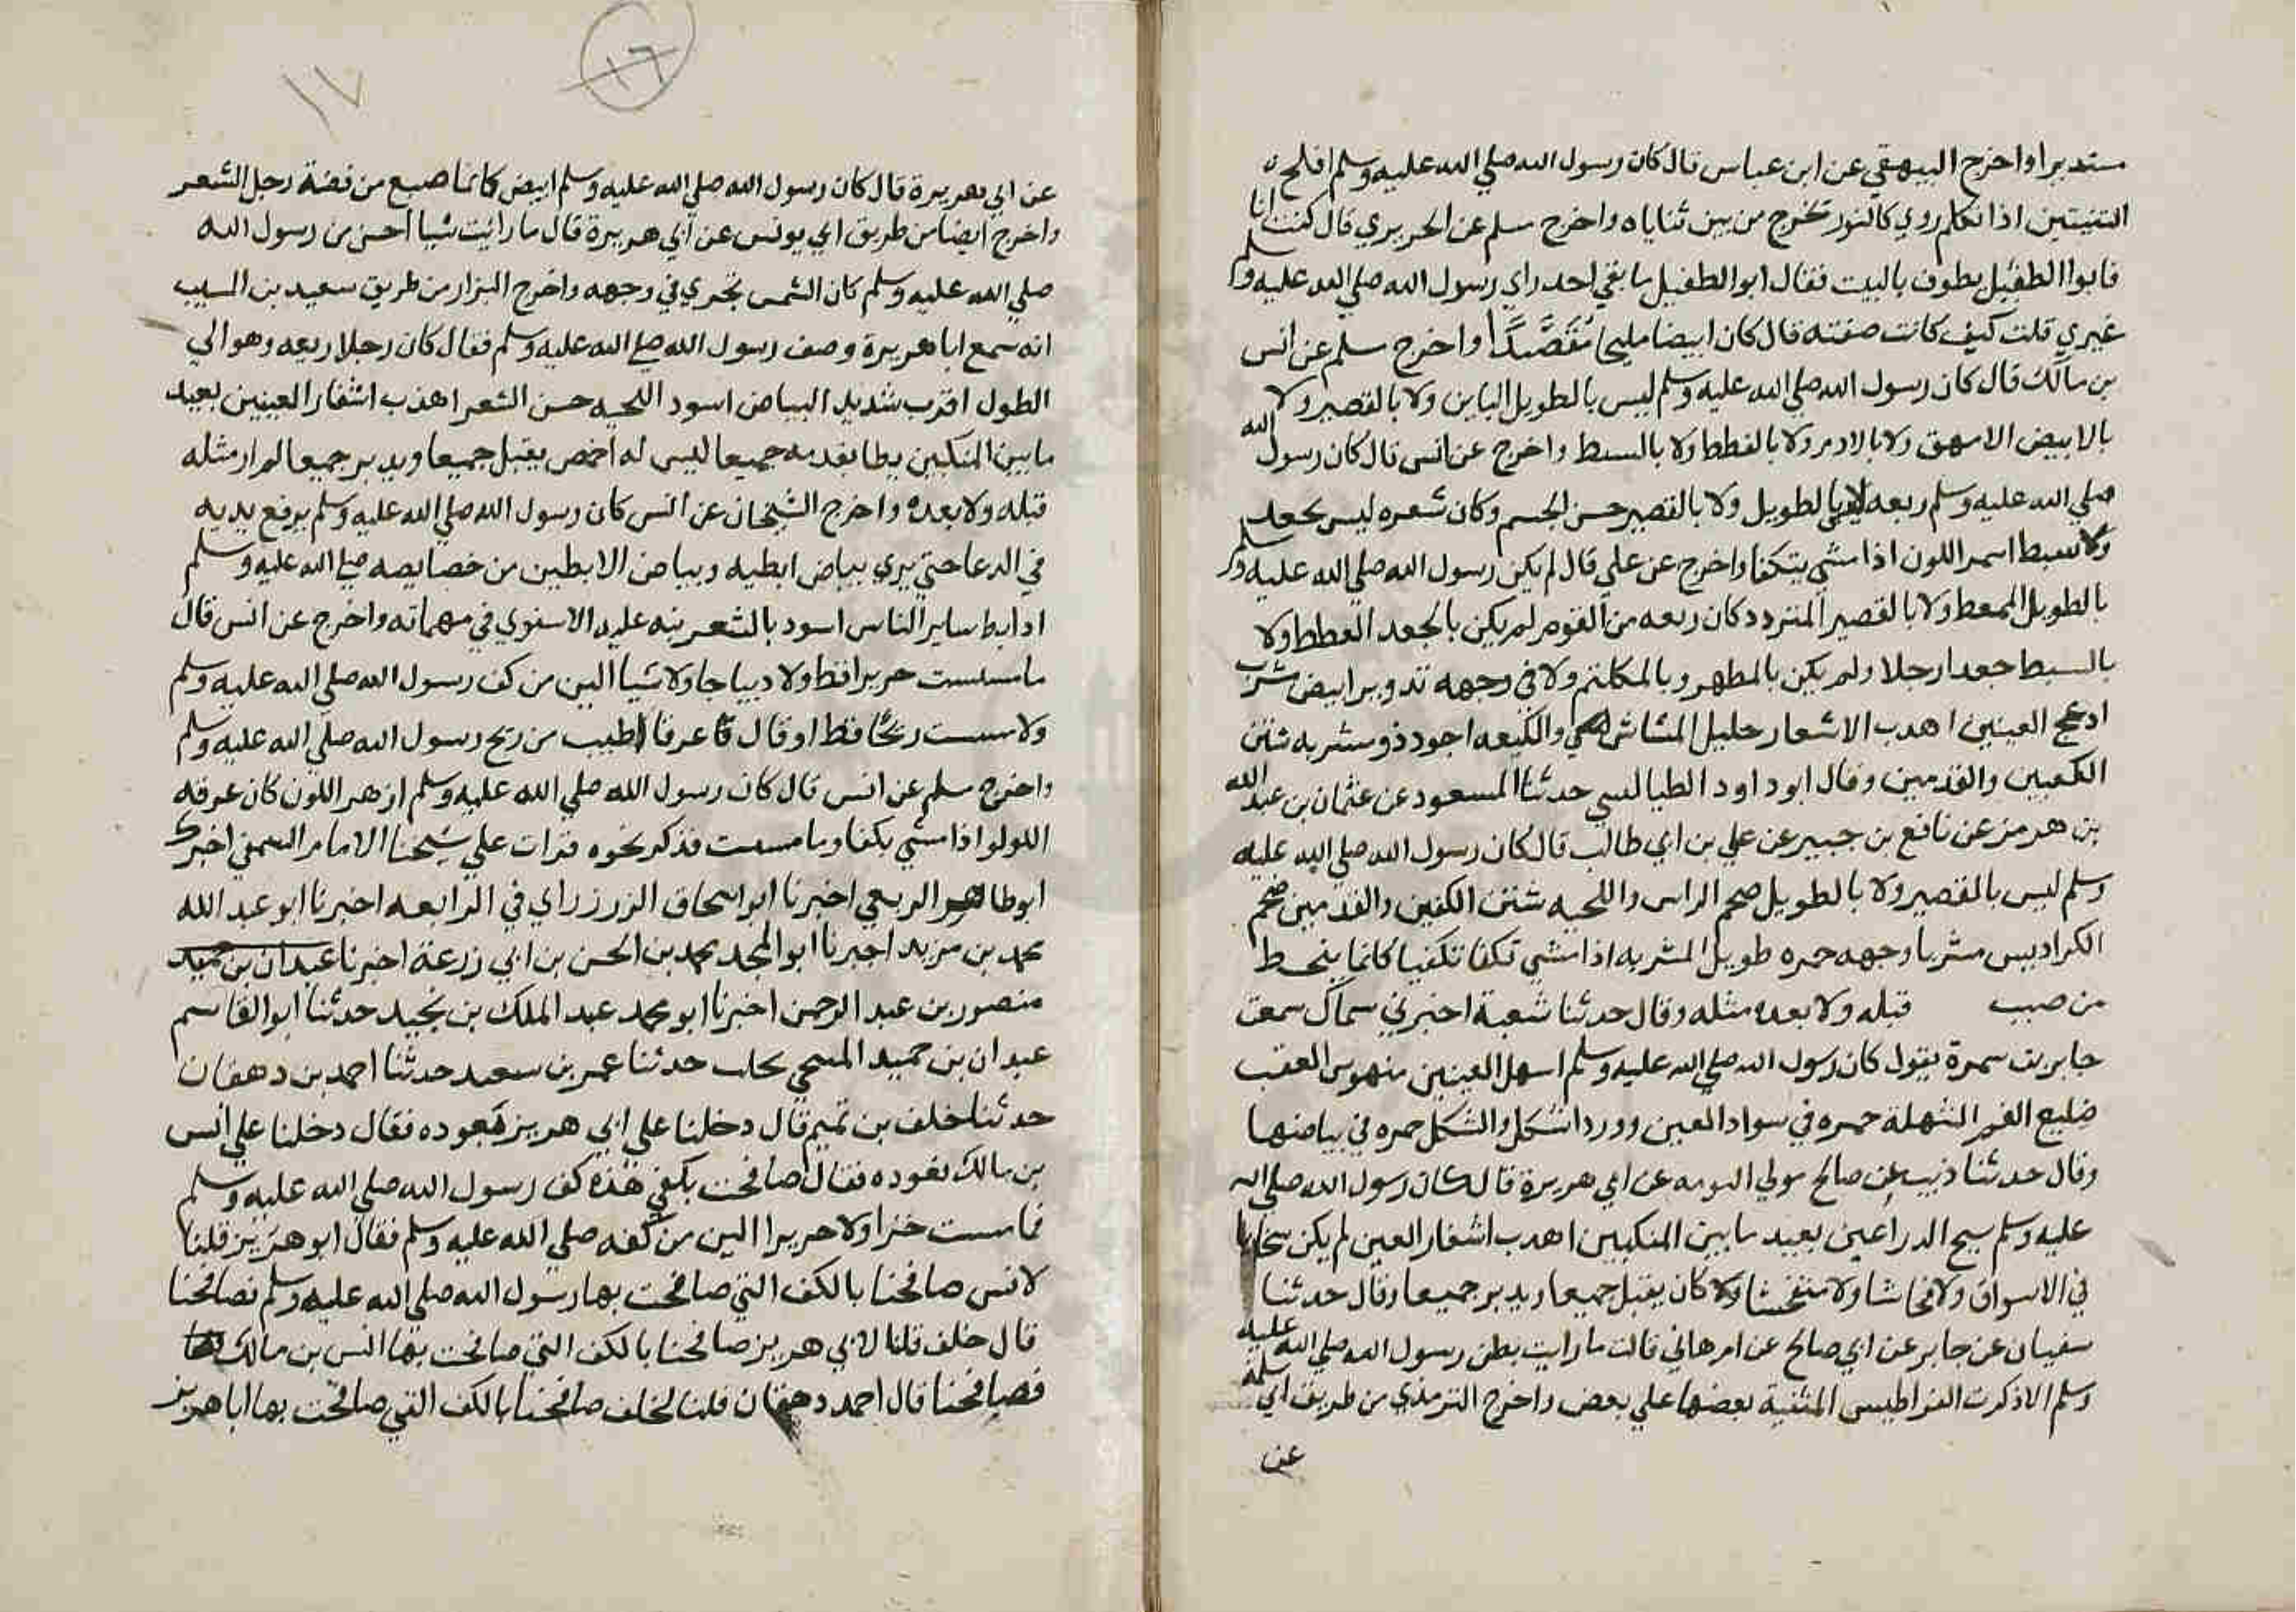 مستديرا واخرج البيهقي عن ابن عباس قال كان رسول الله صلي الله عليه وسلم افلج
الثنيتين اذا تكلم روي كالنور تخرج من بين ثناياه واخرج مسلم عن الجريري قال كنت انا
فابوا الطفيل يطوف بالبيت فقال ابوالطفيل ما بقي احد راي رسول الله صلي الله عليه وسلم
غيري قلت كيف كانت صفته قال كان ابيضا مليحا مُقَصَّدًا واخرج مسلم عن انس
بن مالك قال كان رسول الله صلي الله عليه وسلم ليس بالطويل الباين ولا بالقصير ولا
بالابيض الامهق ولا بالادم ولا بالقطط ولا بالسبط واخرج عن انس قال كان رسول الله
صلي الله عليه وسلم ربعه بالطويل ولا بالقصير حسن الجسم وكان شعره ليس بجعد
ولا سبط اسمر اللون اذا مشي يتكفا واخرج عن علي قال لم يكن رسول الله صلي الله عليه وسلم
بالطويل الممغط ولا بالقصير المتردد كان ربعه من القوم لم يكن بالجعد القطط ولا
بالسبط جعدا رجلا ولم يكن بالمطهم و بالمكلثم ولا في وجهه تدوير ابيض مشرب
ادعج العينين اهدب الاشعار جليل المشاش والكيعه اجود ذو مسربه شثن
الكعبين والقدمين وقال ابوداود الطيالسي حدثنا المسعود عن عثمان بن عبد الله
بن هرمز عن نافع بن جبير عن علي بن ابي طالب قال كان رسول الله صلي الله عليه
وسلم ليس بالقصير ولا بالطويل ضخم الراس واللحيه شثن الكفين والقدمين ضخم
الكراديس مشربا وجهه حمره طويل المسربه اذا مشي تكفا تكفيا كانما ينحط
من صبب قبله ولا بعده مثله وقال حدثنا شعبة اخبرني سماك سمعت
جابر بن سمرة يقول كان رسول الله صلي الله عليه وسلم اسهل العينين منهوس العقب
ضليع الفم الشهلة حمره في سواد العين وورد اشكل والشكل حمره في بياضها
وقال حدثنا ذيب عن صالح مولي التومه عن ابي هريرة قال كان رسول الله صلي الله
عليه وسلم سبح الدراعين بعيد ما بين المنكبين اهدب اشفار العين لم يكن سخابا
في الاسواق ولا فحاشا ولا متفحشا ولا كان يقبل جميعا ويدبر جميعا وقال حدثنا
سفيان عن جابر عن ابي صالح عن ام هاني قالت ما رايت بطن رسول الله صلي الله عليه
وسلم الا ذكرت القراطيس المثنية بعضها علي بعض واخرج الترمذي من طريق ابي سلمة
عن
١٦
١٧
عن ابي هريرة قال كان رسول الله صلي الله عليه وسلم ابيض كانما صيغ من فضة رجل الشعر
واخرج ايضا من طريق ابي يونس عن ابي هريرة قال ما رائت شيا احسن من رسول الله
صلي الله عليه وسلم كان الشمس تجري في وجهه واخرج البزار من طريق سعيد بن المسيب
انه سمع ابا هريرة وصف رسول الله صلي الله عليه وسلم فقال كان رجلا ربعه وهو الي
الطول اقرب شديد البياض اسود اللحيه حسن الشعر اهذب اشفار العينين بعيد
ما بين المنكبين يطا بقدمه جميعا ليس له اخمص يقبل جميعا ويدبر جميعا لم ار مثله
قبله ولا بعده واخرج الشيخان عن انس كان رسول الله صلي الله عليه وسلم يرفع يديه
في الدعا حتي يري بياض ابطيه وبياض الابطين من خصايصه صلي الله عليه وسلم
اد ابط ساير الناس اسود بالشعر نبه عليه الاسنوي في مهماته واخرج عن انس قال
ما مسست حريرا قط ولا ديباجا ولا شيا الين من كف رسول الله صلي الله عليه وسلم
ولا مسست ريحًا قط او قال عرفا اطيب من ريح رسول الله صلي الله عليه وسلم
واخرج مسلم عن انس قال كان رسول الله صلي الله عليه وسلم ازهر اللون كان عرقه
اللولو اذا مشي يكفا وما مسست فذكر نحوه قرات علي شيخنا الامام الشمني اخبرك
ابوطاهر الربعي اخبرنا ابواسحاق الزرزراي في الرابعه اخبرنا ابوعبد الله
محمد بن مزيد اخبرنا ابوالمجد محمد بن الحسن بن ابي زرعة اخبرنا عبدان بن حميد
منصور بن عبد الرحمن اخبرنا ابو محمد عبد الملك بن نجيد حدثنا ابوالقاسم
عبدان بن حميد المنبجي بحلب حدثنا عمر بن سعيد حدثنا احمد بن دهقان
حدثنا خلف بن تميم قال دخلنا علي ابي هريز نعوده فقال دخلنا علي انس
بن مالك نعوده فقال صافحت بكفي هذه كف رسول الله صلي الله عليه وسلم
فما مسست خزا ولا حريرا الين من كفه صلي الله عليه وسلم فقال ابو هريز قلنا
لانس صافحنا بالكف التي صافحت بها رسول الله صلي الله عليه وسلم فصافحنا
قال خلف قلنا لابي هريز صافحنا بالكف التي صافحت بها انس بن مالك
فصافحنا قال احمد دهقان قلنا لخلف صافحنا بالكف التي صافحت بها ابا هريز